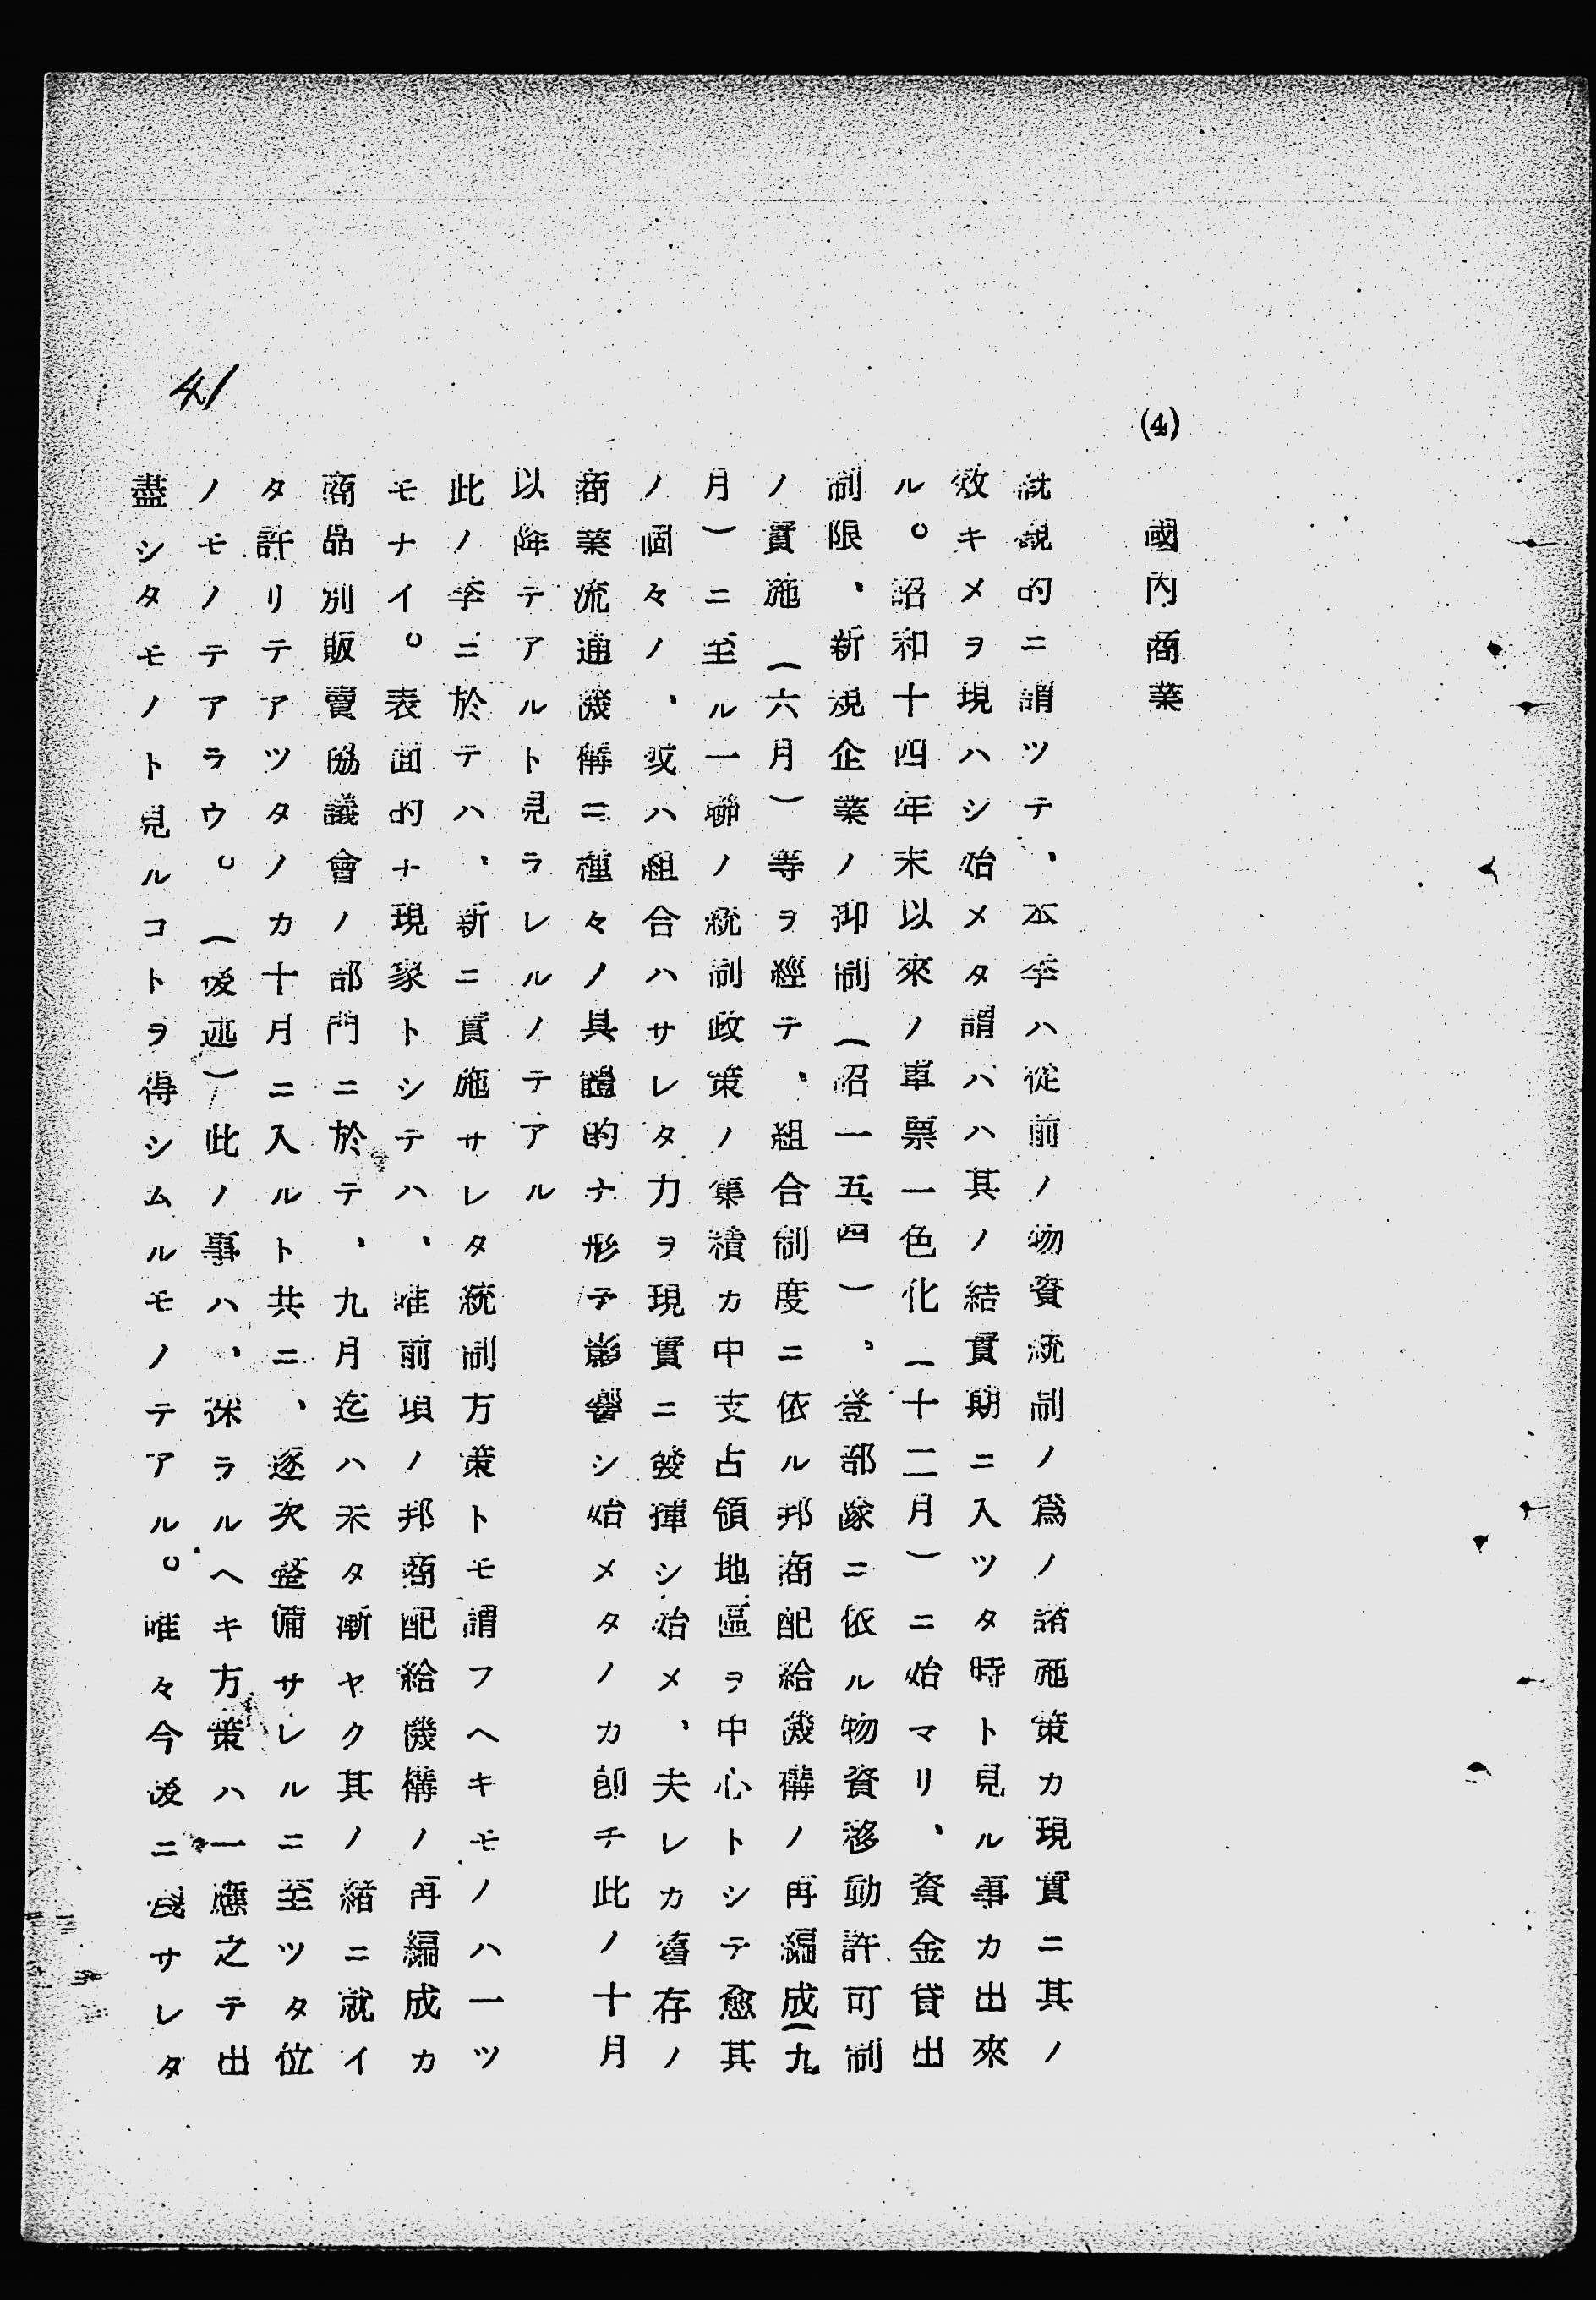 (4)
國內商業
概観的ニ謂ツテ、本季ハ從前ノ物資統制ノ爲ノ諸施策カ現實ニ其ノ
效キメヲ現ハシ始メタ謂ハハ其ノ結實期ニ入ツタ時ト見ル事カ出來
ル。昭和十四年末以來ノ軍票一色化(十二月)ニ始マリ、資金貸出
制限、新規企業ノ抑制(昭一五、四)、登部隊ニ依ル物資移動許可制
ノ實施(六月)等ヲ經テ、組合制度ニ依ル邦商配給機構ノ再編成(九
月)ニ至ル一聯ノ統制政策ノ集積カ中支占領地區ヲ中心トシテ愈其
ノ個々ノ、或ハ組合ハサレタ力ヲ現實ニ發揮シ始メ、夫レカ舊存ノ
商業流通機構ニ種々ノ具體的ナ形テ影響シ始メタノカ卽チ此ノ十月
以降テアルト見ラレルノテアル
此ノ季ニ於テハ、新ニ實施サレタ統制方策トモ謂フヘキモノハ一ツ
モナイ。表面的ナ現象トシテハ、唯前項ノ邦商配給機構ノ再編成カ
商品別販賣協議會ノ部門ニ於テ、九月迄ハ未タ漸ヤク其ノ緒ニ就イ
タ許リテアツタノカ十月ニ入ルト共ニ、逐次整備サレルニ至ツタ位
ノモノテアラウ。(後述)此ノ事ハ、採ラルヘキ方策ハ一應之テ出
盡シタモノト見ルコトヲ得シムルモノテアル。唯々今後ニ殘サレタ
41